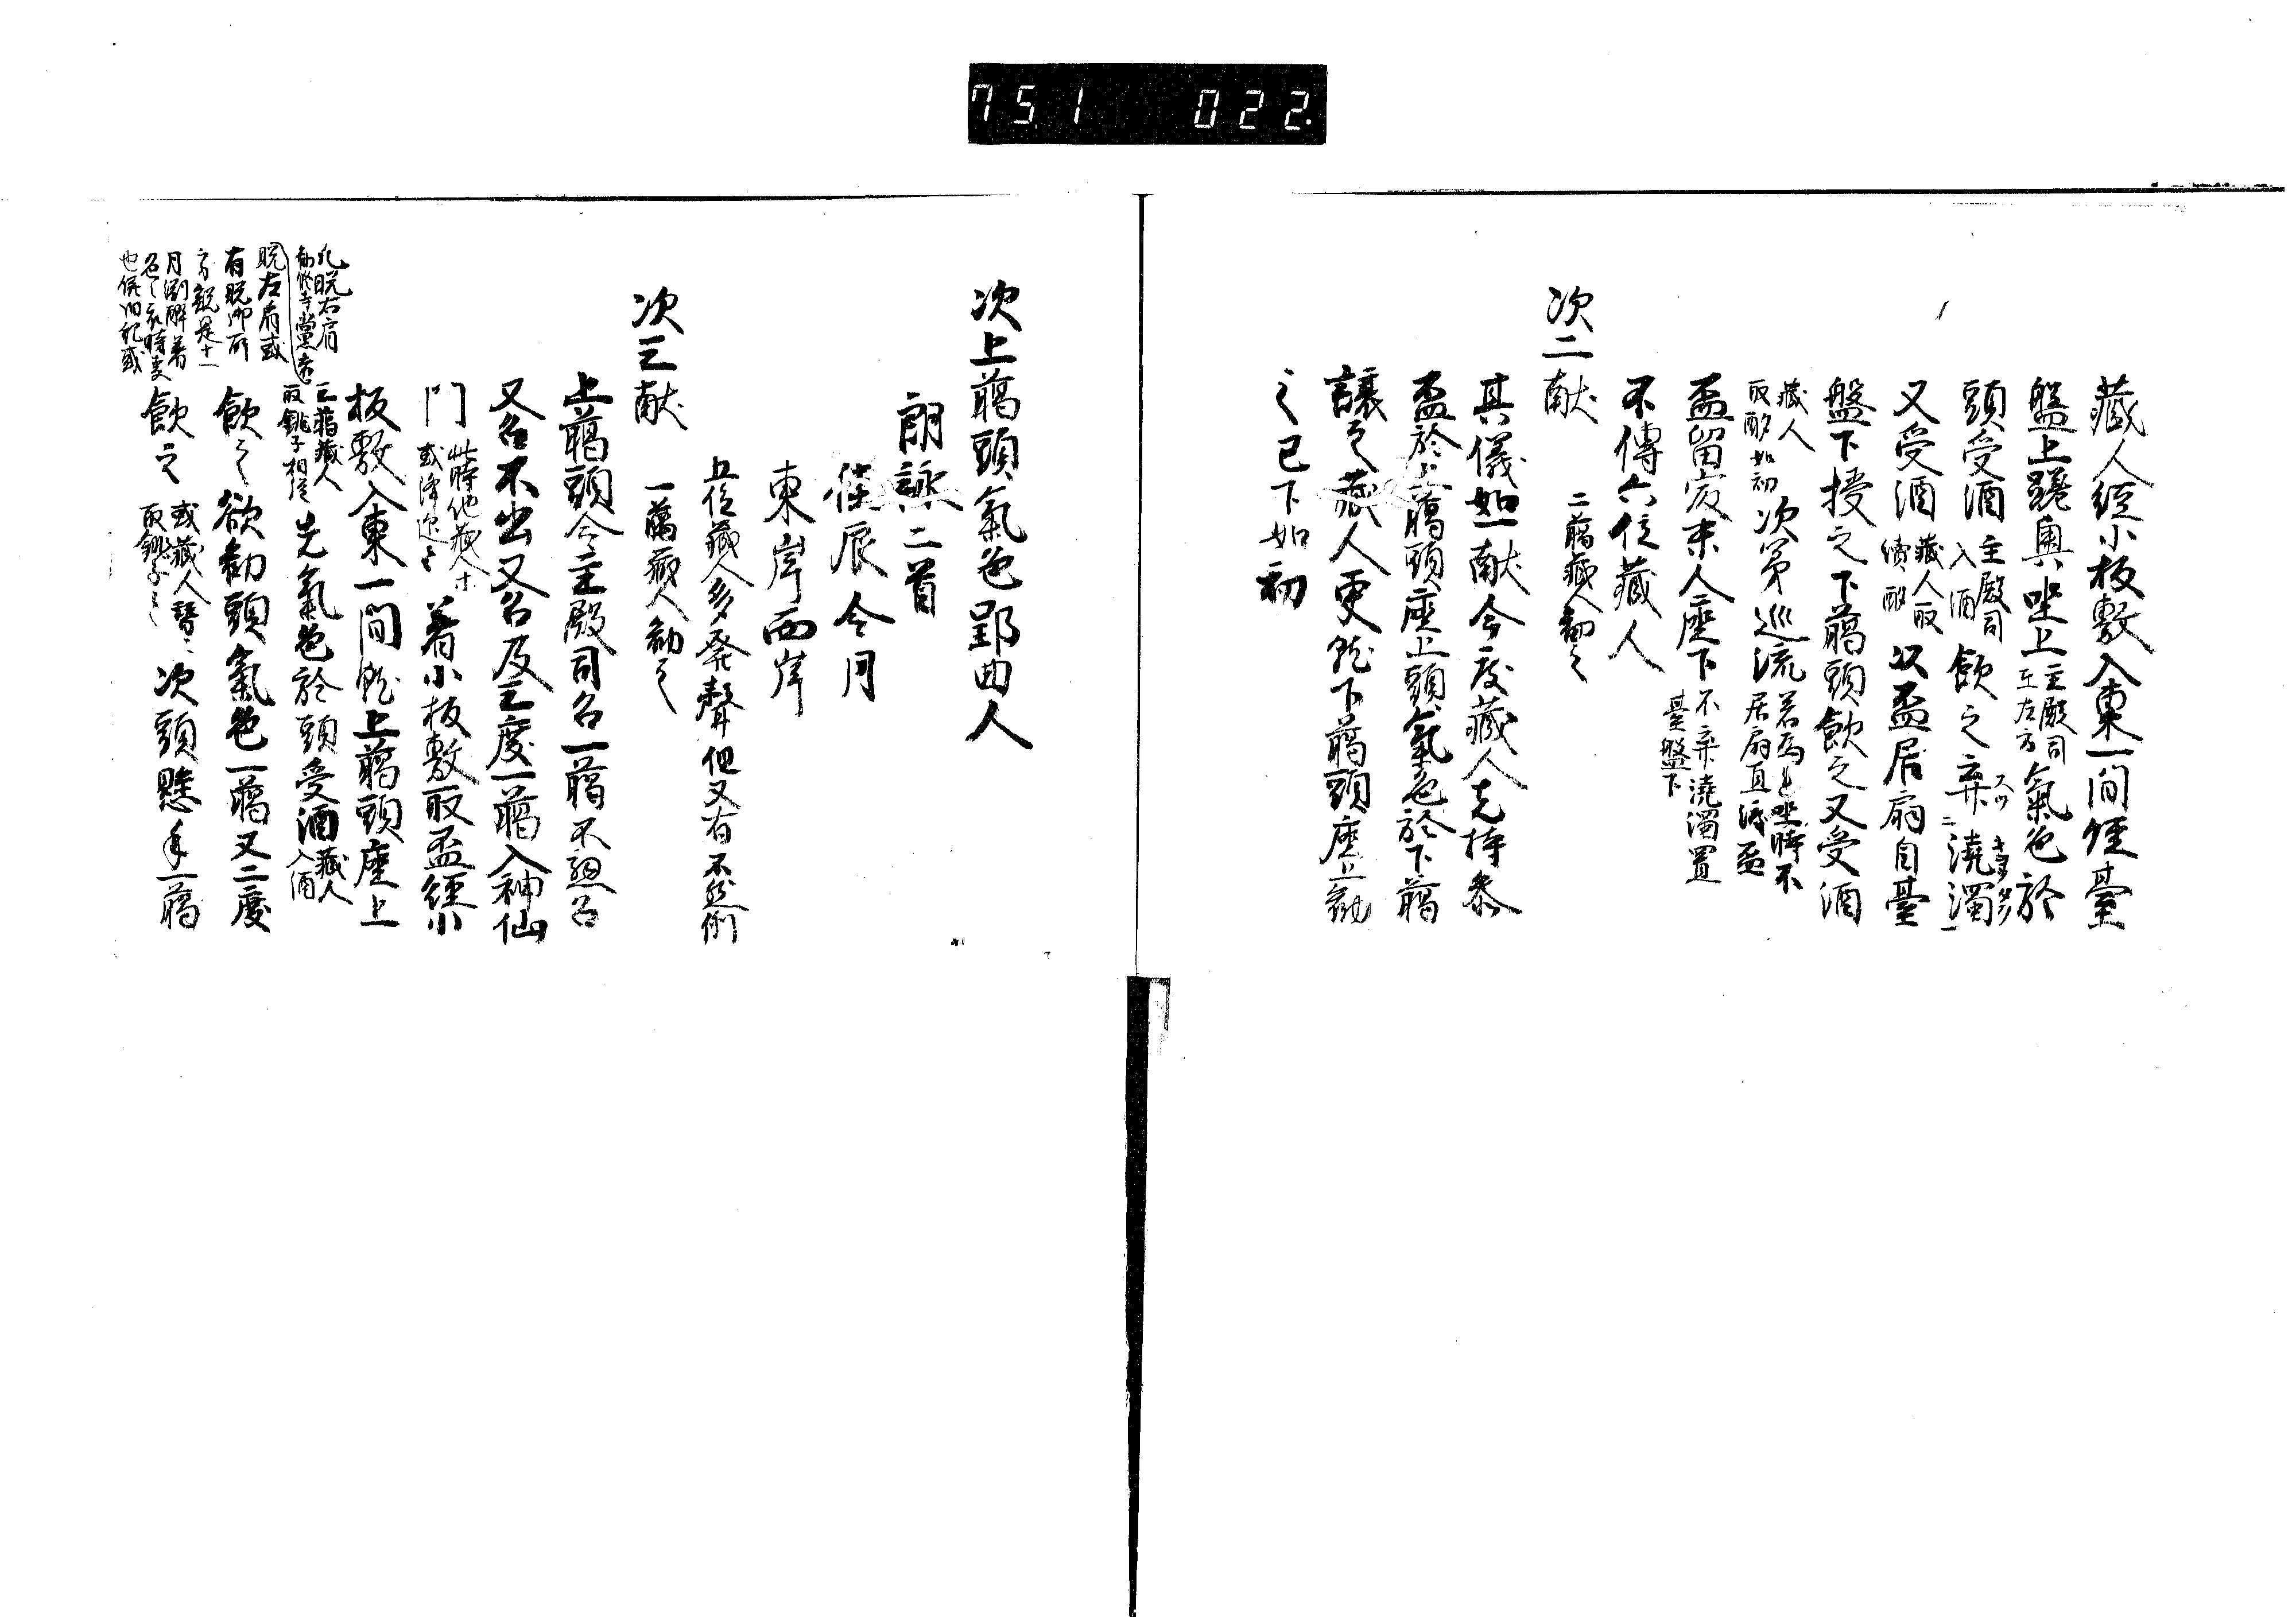 751 022
藏人経小板敷入東一間経臺
盤上跪奥坐上主殿司在左方氣色於
頭受酒主殿司入酒飲之弃澆濁
又受酒藏人取續酌以盃居扇自臺
盤下授之下﨟頭飲之又受酒
藏人取酌如初次第巡流居扇直流盃
盃留寂末人座下不弃澆濁置臺盤下
不傳六位藏人
次二献 二﨟藏人勧之
其儀如一献今度藏人先持参
盃於上﨟頭座上頭氣色於下﨟
讓之藏人更就下﨟頭座上勧
之已下如初
次上﨟頭氣色郢曲人
朗詠二首
佳辰令月
東岸西岸
五位藏人多発聲但又有不然例
次三献 一﨟藏人勧之
上﨟頭令主殿司召一﨟不聞召
又召不出又召及三度一﨟入神仙
門此時他藏人木或降迎之着小板敷取盃経小
板敷入東一間就上﨟頭座上
三﨟藏人取銚子相従先氣色於頭受酒藏人入酒
飲之欲勧頭氣色一﨟又二度
飲之或藏人取銚子次頭懸手一﨟
凡脱右肩
勧修寺黨
脱左肩或
有脱御所
方說是十一
月淵酔着